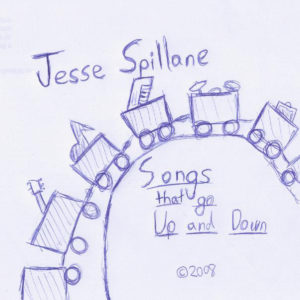 Jesse Spillane
Songs
that go
Up and Down
©2008